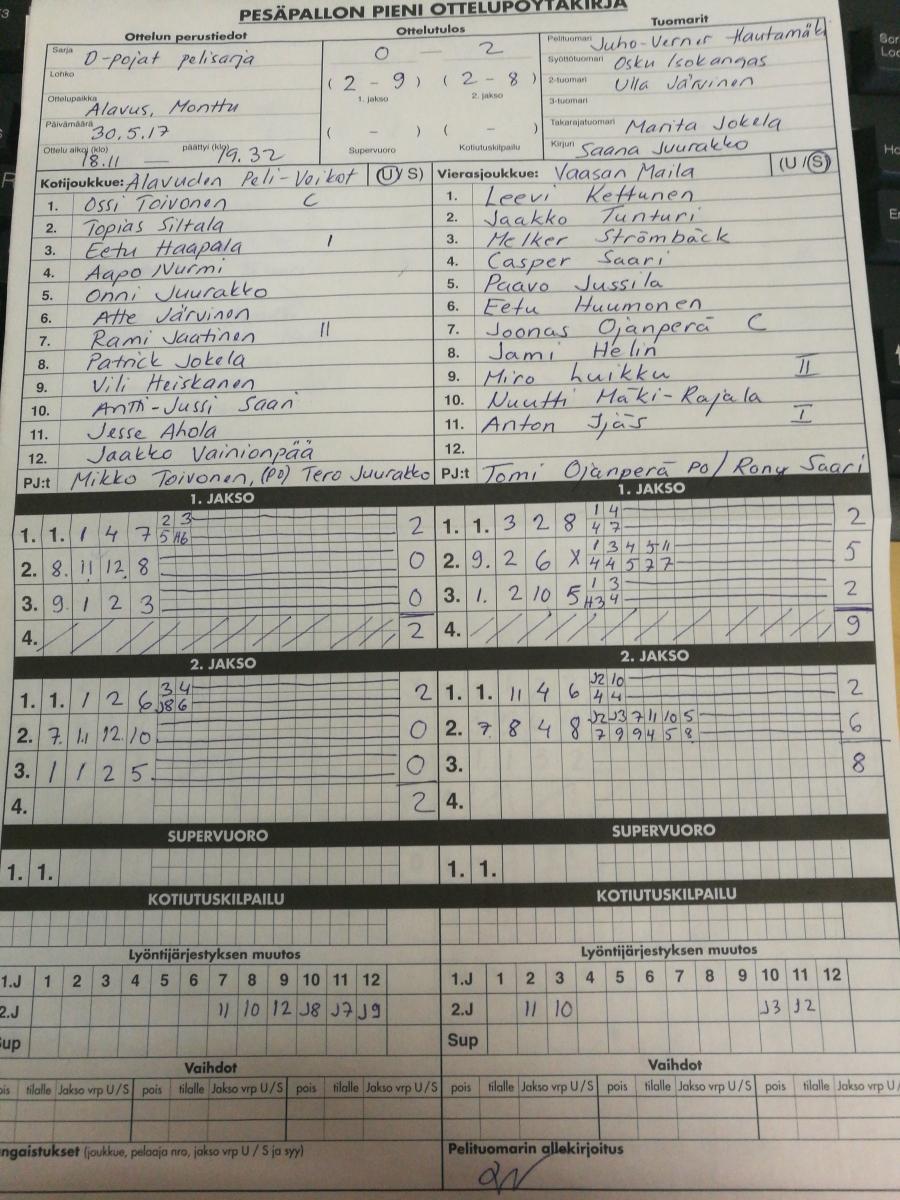 PESÄPALLON PIENI OTTELUPÖYTÄKIRJA
Ottelun perustiedot
Sarja D-pojat pelisarja
Lohko
Ottelupaikka Alavus, Monttu
Päivämäärä 30.5.17
Ottelu alkoi (klo) 18.11 — päättyi (klo) 19.32
Ottelutulos
0 — 2
( 2 - 9 ) ( 2 - 8 )
1. jakso 2. jakso
( - ) ( - )
Supervuoro Kotiutuskilpailu
Tuomarit
Pelituomari Juho-Verner Hautamäki
Syöttötuomari Osku Isokangas
2-tuomari Ulla Järvinen
3-tuomari
Takarajatuomari Marita Jokela
Kirjuri Saana Juurakko
Kotijoukkue: Alavuden Peli-Veikot (U/S)
1. Ossi Toivonen C
2. Topias Siltala
3. Eetu Haapala I
4. Aapo Nurmi
5. Onni Juurakko
6. Atte Järvinen
7. Rami Jaatinen II
8. Patrick Jokela
9. Vili Heiskanen
10. Antti-Jussi Saari
11. Jesse Ahola
12. Jaakko Vainionpää
PJ:t Mikko Toivonen, (PO) Tero Juurakko
Vierasjoukkue: Vaasan Maila (U/S)
1. Leevi Kettunen
2. Jaakko Tunturi
3. Melker Strömbäck
4. Casper Saari
5. Paavo Jussila
6. Eetu Huumonen
7. Joonas Ojanperä C
8. Jami Helin
9. Miro Luikku II
10. Nuutti Mäki-Rajala
11. Anton Ijäs I
12.
PJ:t Tomi Ojanperä PO / Rony Saari
1. JAKSO
2 3
1. 1. 1 4 7 5 H6 2
2. 8. 11 12 8 0
3. 9 1 2 3 0
4. 2
1. JAKSO
1 4
1. 1. 3 2 8 4 7 2
1 3 4 5 11
2. 9. 2 6 X 4 4 5 7 7 5
1 3
3. 1. 2 10 5 H3 4 2
4. 9
2. JAKSO
3 4
1. 1. 1 2 6 J8 6 2
2. 7. 11 12 10 0
3. 1 1 2 5 0
4. 2
2. JAKSO
J2 10
1. 1. 11 4 6 4 4 2
J2 J3 7 11 10 5
2. 7 8 4 8 7 9 9 4 5 8 6
3. 8
4.
SUPERVUORO
1. 1.
SUPERVUORO
1. 1.
KOTIUTUSKILPAILU
KOTIUTUSKILPAILU
Lyöntijärjestyksen muutos
1.J 1 2 3 4 5 6 7 8 9 10 11 12
2.J 11 10 12 J8 J7 J9
Sup
Lyöntijärjestyksen muutos
1.J 1 2 3 4 5 6 7 8 9 10 11 12
2.J 11 10 J3 J2
Sup
Vaihdot
pois tilalle Jakso vrp U/S pois tilalle Jakso vrp U/S pois tilalle Jakso vrp U/S
Vaihdot
pois tilalle Jakso vrp U/S pois tilalle Jakso vrp U/S pois tilalle Jakso vrp U/
ngaistukset (joukkue, pelaaja nro, jakso vrp U / S ja syy)
Pelituomarin allekirjoitus